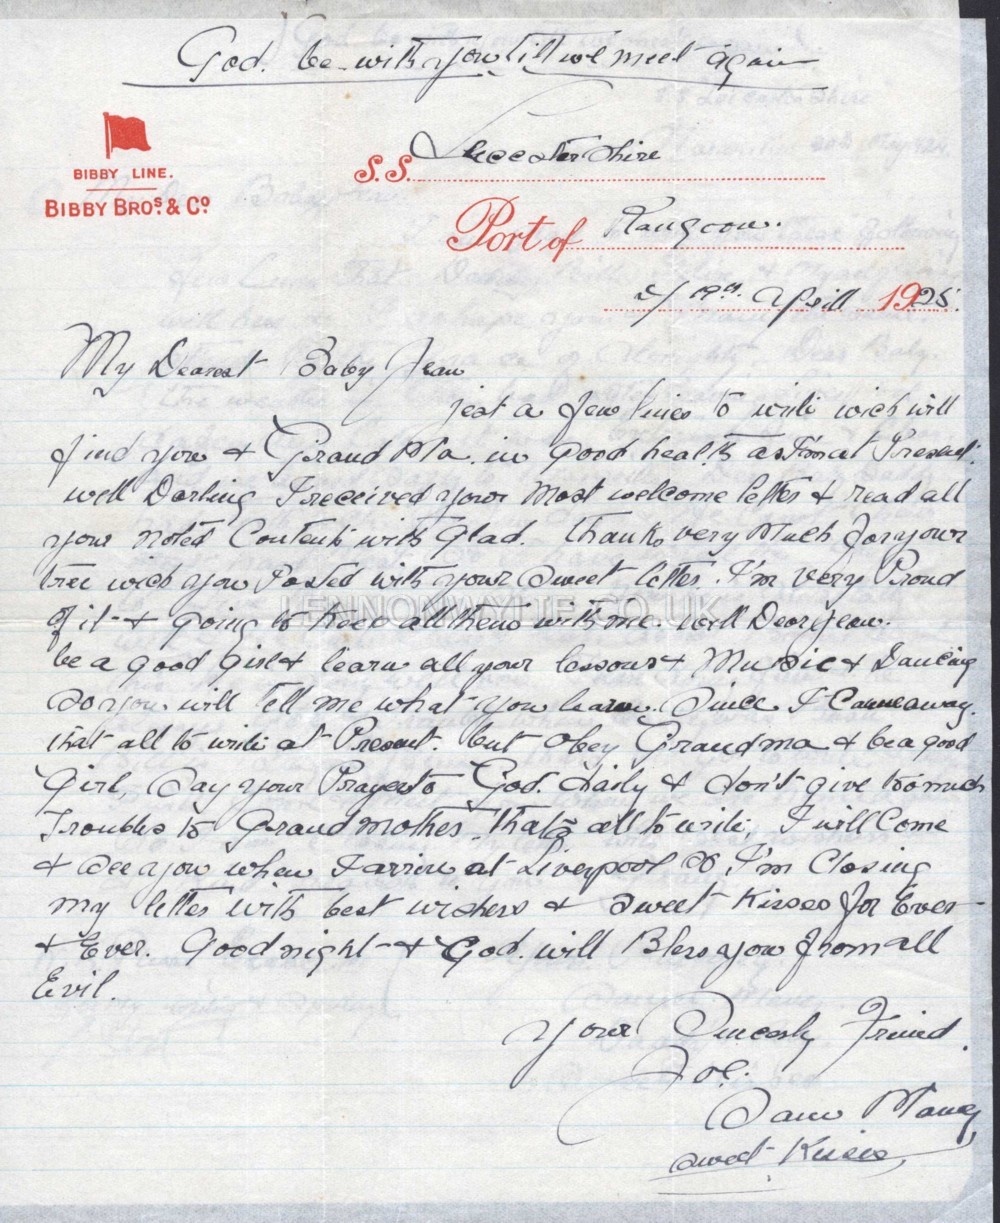 God. be with you till we meet again
BIBBY LINE.
BIBBY BROS. & CO.
S.S. Leicestershire
Port of Rangoon.
April 1925.
My Dearest Baby Jean
jest a few lines to write wich will
find you & Grand Ma. in good health as I'm at Present.
well Darling I received your most welcome letter & read all
your noted Contents with Glad. thanks very Much for your
tree wich you Posted with your sweet letter. I'm very Proud
of it & going to keep all them with me. well Dear Jean.
be a good girl & learn all your lessons & Music & Dancing
so you will tell me what you learn. Since I came away.
that all to write at Present. but obey Grandma & be a good
Girl, Say your Prayers to God. daily & don't give to much
Troubles to Grandmother. that's all to write, I will Come
& see you when I arrive at Liverpool so I'm Closing
my letter with best wishers & sweet Kisses for Ever
& Ever. Good night & God. will Bless you from all
Evil.
LENNONWYLIE.CO.UK
your Sincerly Friend.
Joe.
Sam
sweet Kisses